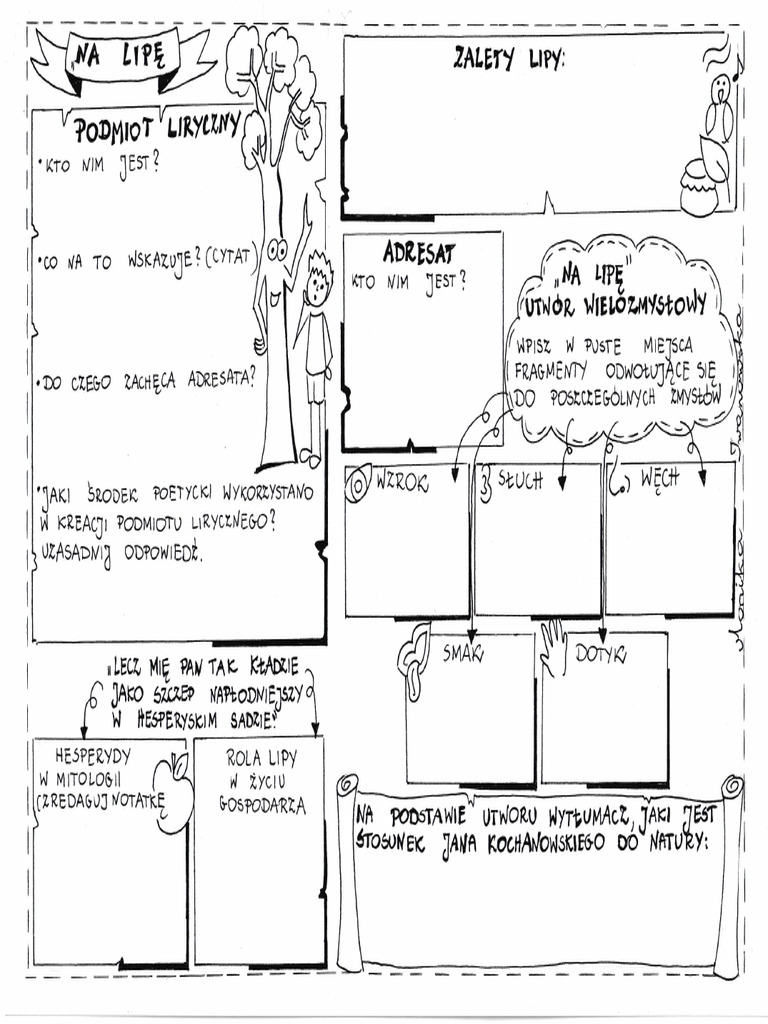 „NA LIPĘ”
PODMIOT LIRYCZNY
• KTO NIM JEST?
• CO NA TO WSKAZUJE? (CYTAT)
• DO CZEGO ZACHĘCA ADRESATA?
• JAKI ŚRODEK POETYCKI WYKORZYSTANO
W KREACJI PODMIOTU LIRYCZNEGO?
UZASADNIJ ODPOWIEDŹ.
„LECZ MIĘ PAN TAK KŁADZIE
JAKO SZCZEP NAPŁODNIEJSZY
W HESPERYSKIM SADZIE”
HESPERYDY
W MITOLOGII
(ZREDAGUJ NOTATKĘ
ROLA LIPY
W ŻYCIU
GOSPODARZA
ZALETY LIPY:
ADRESAT
KTO NIM JEST?
„NA LIPĘ”
UTWÓR WIELOZMYSŁOWY
WPISZ W PUSTE MIEJSCA
FRAGMENTY ODWOŁUJĄCE SIĘ
DO POSZCZEGÓLNYCH ZMYSŁÓW
WZROK
SŁUCH
WĘCH
SMAK
DOTYK
NA PODSTAWIE UTWORU WYTŁUMACZ, JAKI JEST
STOSUNEK JANA KOCHANOWSKIEGO DO NATURY:
Monika Iwanowska